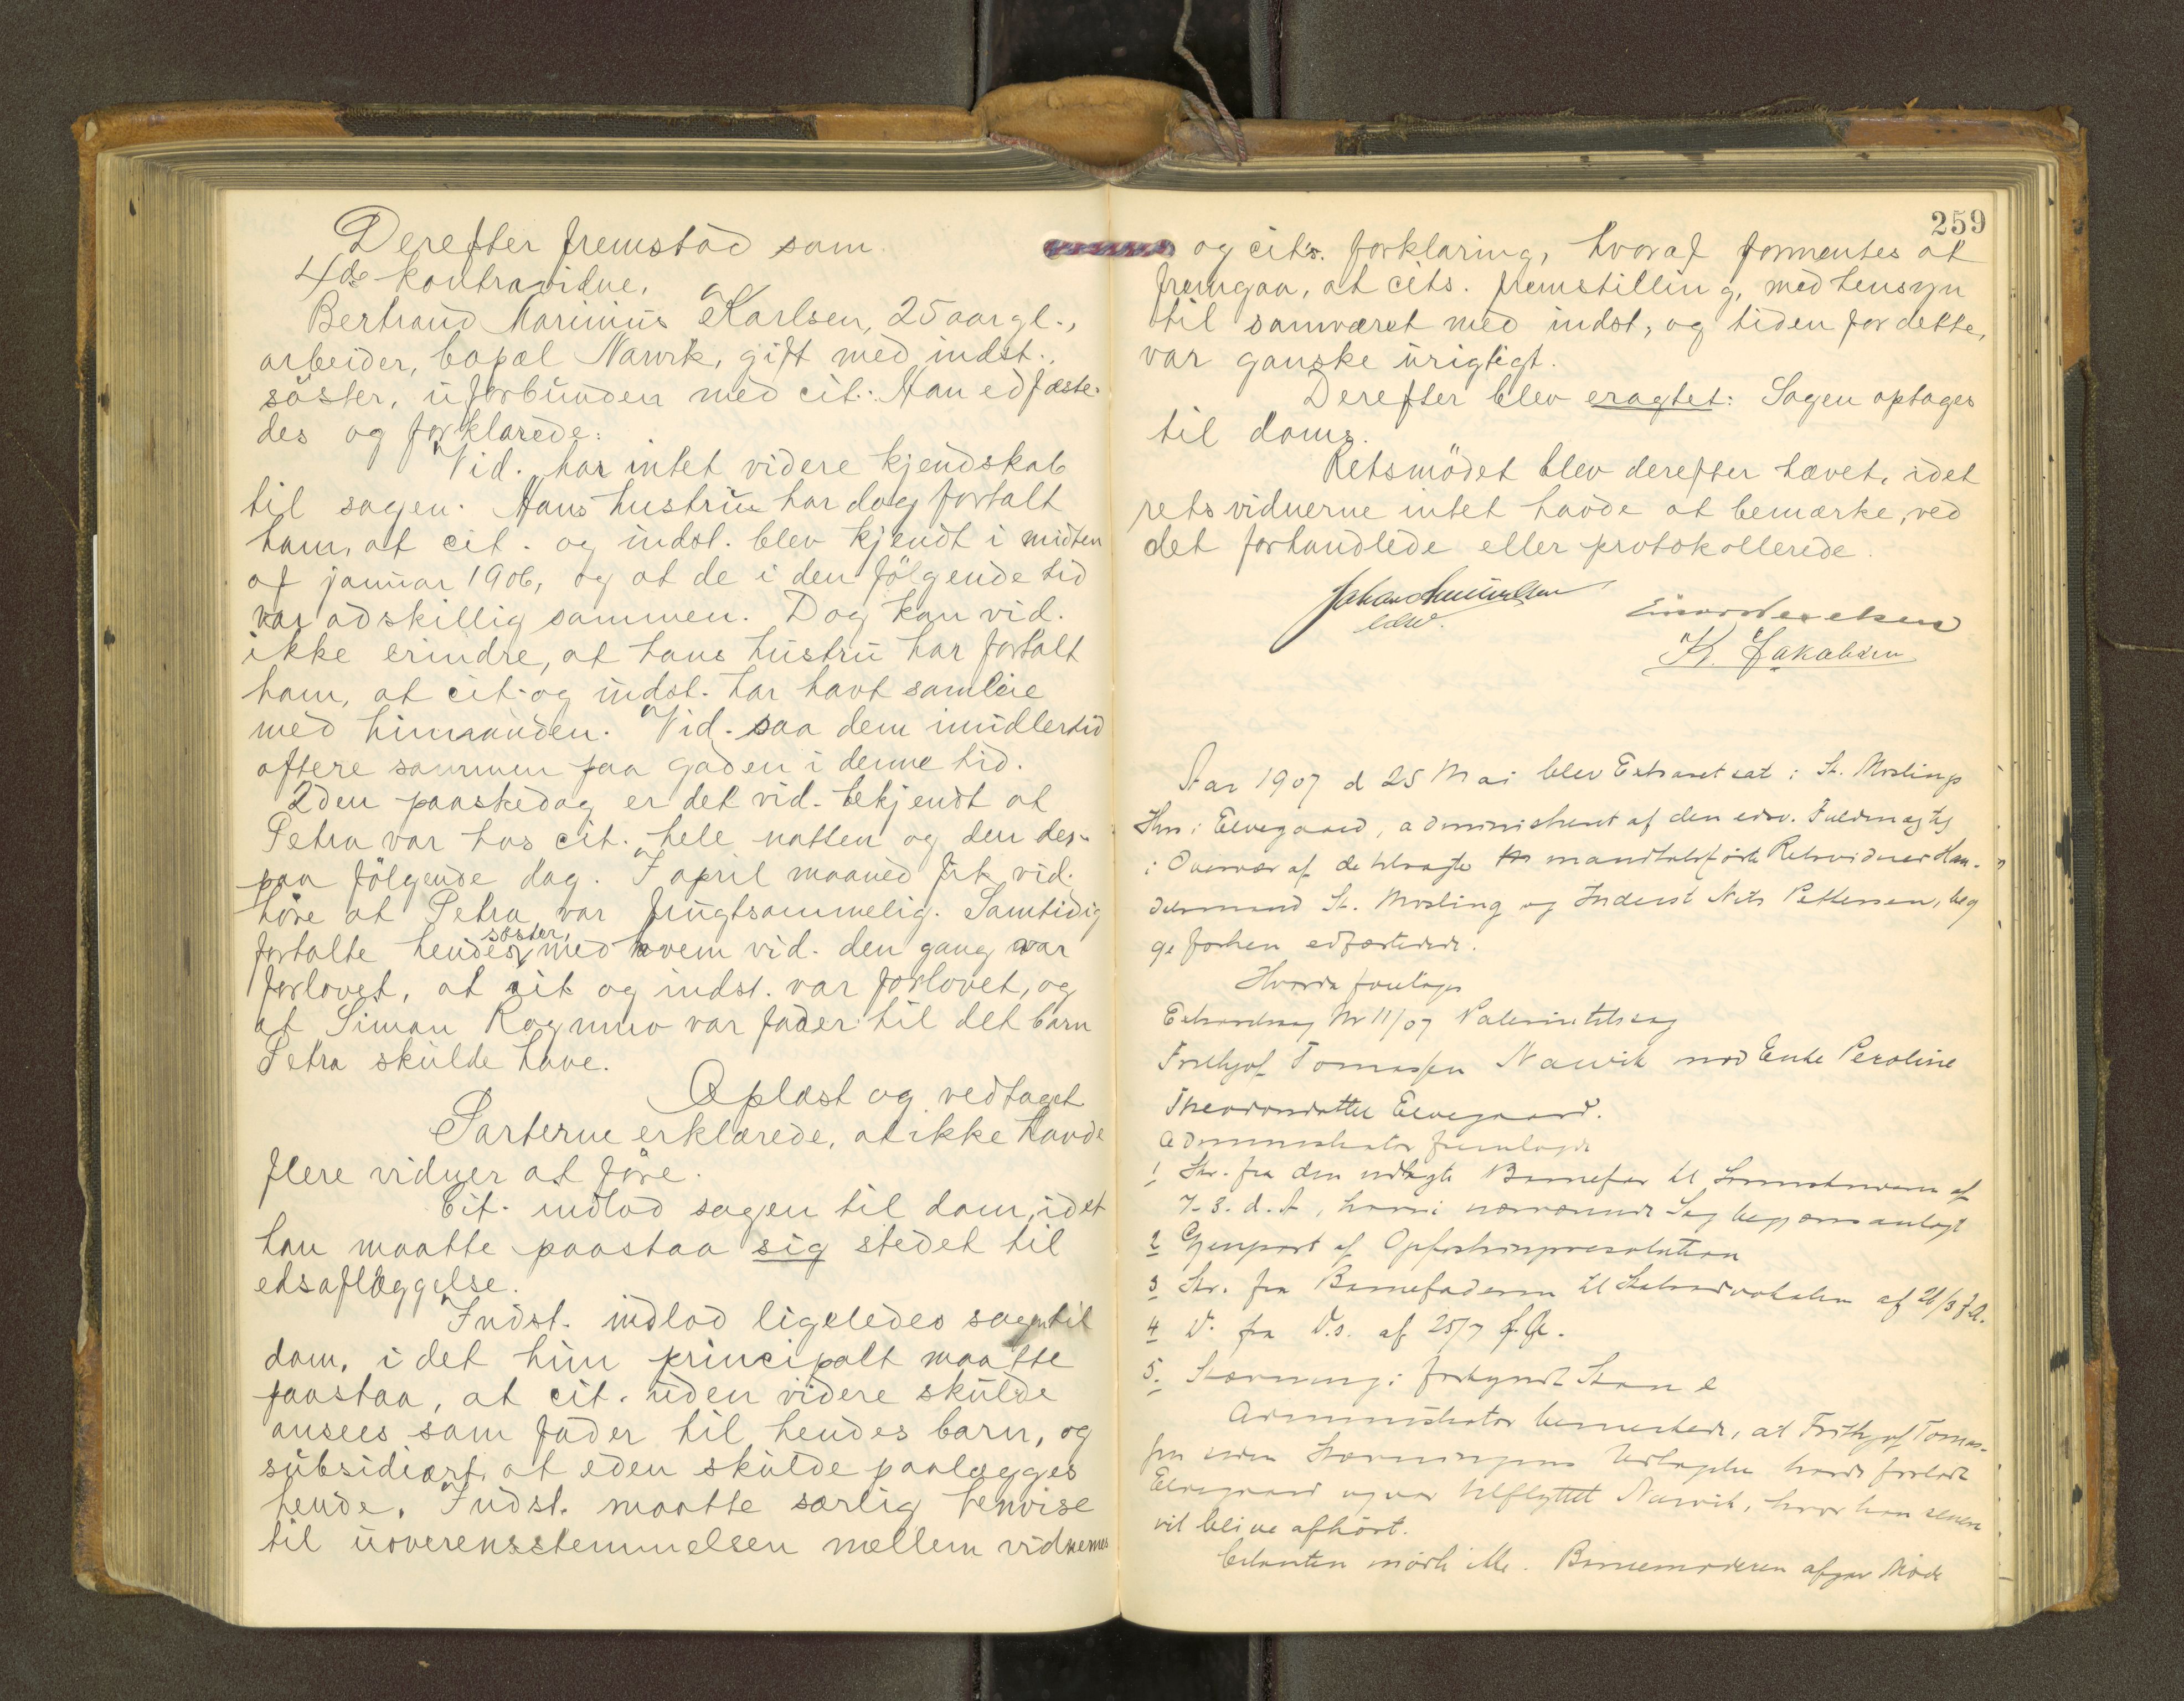 Derefter fremstod som
4de kontravidne,
Bertrand Marinius Karlsen, 25 aar gl.,
arbeider, bopæl Narvik, gift med indst.,
söster, uforbunden med cit. Han edfæste-
des og forklarede:
Vid. har intet videre kjendskab
til sagen. Hans hustru har dog fortalt
ham, at cit. og indst. blev kjendt i midten
af januar 1906, og at de i den fölgende tid
var adskillig sammen. Dog kan vid.
ikke erindre, at hans hustru har fortalt
ham, at cit. og indst. har havt samleie
med hinanden. Vid. saa dem imidlertid
oftere sammen paa gaden i denne tid.
2den paaskedag er det vid. bekjendt at
Petra var hos cit. hele natten og den der-
paa fölgende dag. I april maaned fik vid.
höre at Petra var frugtsommelig. Samtidig
söster,
fortalte hendes med hvem vid. den gang var
forlovet, at cit og indst. var forlovet, og
at Simon Rognmo var fader til det barn
Petra skulde have.
Oplæst og vedtaget
Parterne erklærede, at ikke havde
flere vidner at före.
Cit. indlod sagen til dom, idet
han maatte paastaa sig stedet til
edsaflæggelse.
Indst. indlod ligeledes sagen til
dom, i det hun principalt maatte
paastaa, at cit. uden videre skulde
ansees som fader til hendes barn, og
subsidiært, at eden skulde paalægges
hende. Indst. maatte særlig henvise
til uoverensstemmelsen mellem vidnernes
259
og cit's. forklaring, hvoraf formentes at
fremgaa, at cits. fremstilling, med hensyn
til samværet med indst, og tiden for dette,
var ganske urigtigt.
Derefter blev eragtet: Sagen optages
til doms.
Retsmödet blev derefter hævet, idet
retsvidnerne intet havde at bemærke, ved
det forhandlede eller protokollerede.
K. Jakobsen
Aar 1907 d 25 Mai blev Extraret sat i St. Moslings
Hus i Elvegaard, administreret af den edsv. Fuldmægtig
i Overvær af de tilsagte mandtalsførte Retsvidner Han-
delsmand St. Mosling og Inderst Nils Pettersen, beg
ge forhen edfæstede.
Hvorda foretoges
Extraretssag Nr 11/07 Paternitetssag
Frithjof Tomassen Narvik mod Enke Peroline
Theodorsdatter Elvegaard.
Administrator fremlagde
1 Skr. fra den udlagte Barnefar til Sorenskriveren af
7-3. d. A, hvori nærværende Sag begjæres anlagt
2 Gjenpart af Opfostringsresolution
3 Skr. fra Barnefaderen til af 21/3 f.A.
4 D. fra D.s. af 25/7 f.A.
5. Stævning i forkyndt Stand
Administrator bemerkede, at Frithjof Tomas-
sen siden Stævningens Udtagelse havde forladt
Elvegaard og var tilflyttet Narvik, hvor han senere
vil blive afhört.
Citanten mødte ikke. Barnemoderen afgav Møde